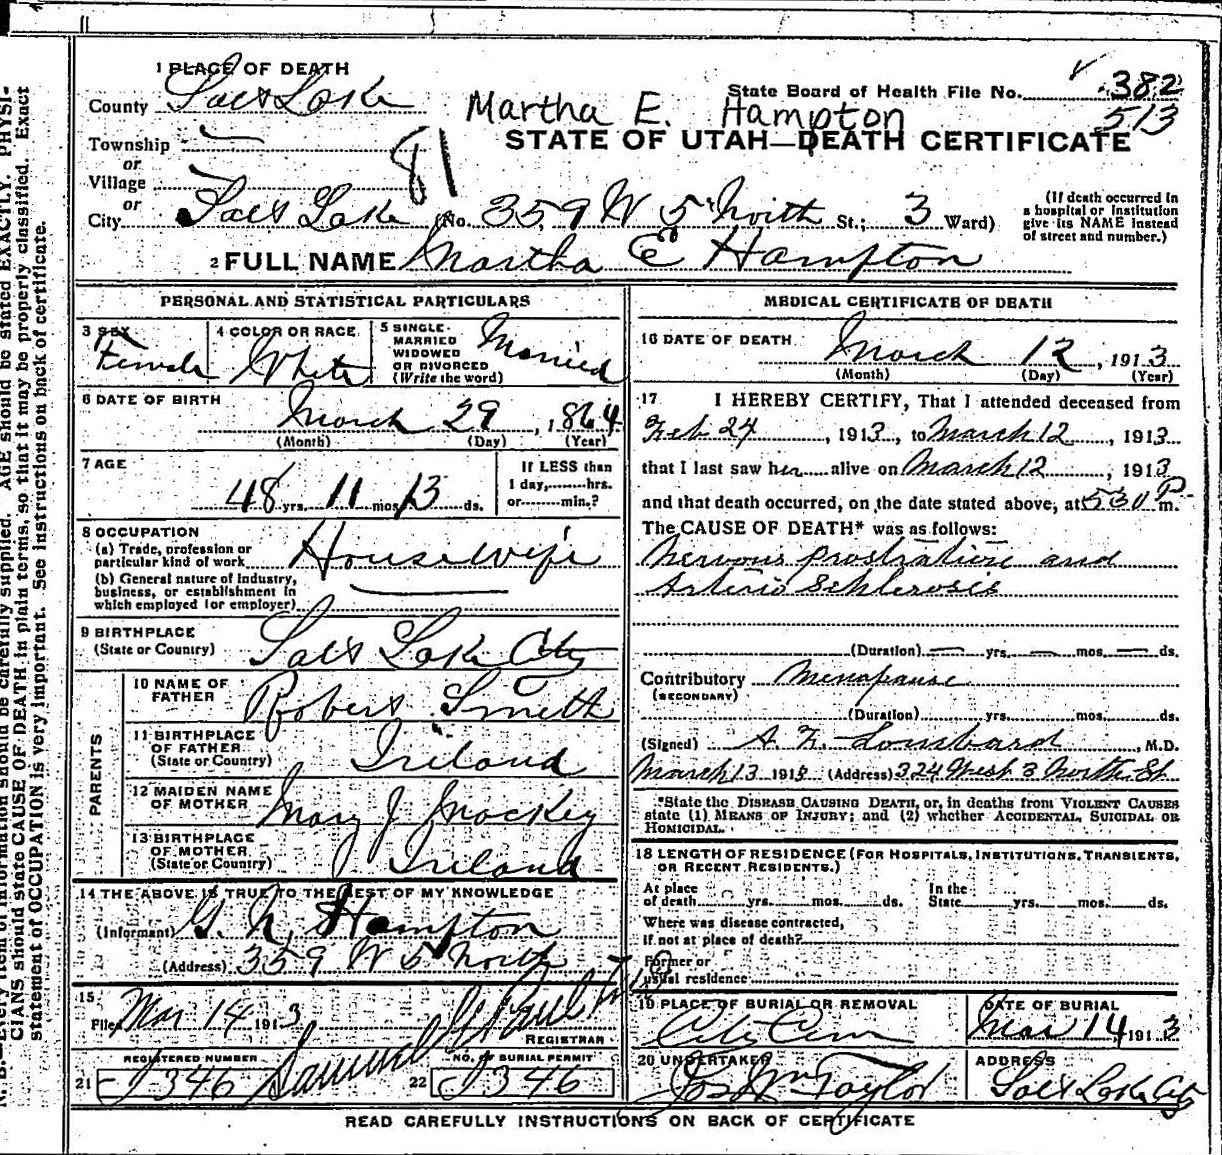 1 PLACE OF DEATH
County Salt Lake
State Board of Health File No. 382
513
Martha E. Hampton
Township
or
Village
or
81
STATE OF UTAH—DEATH CERTIFICATE
City Salt Lake (No. 359 W 5 North St.; 3 Ward)
(If death occurred in
a hospital or institution
give its NAME instead
of street and number.)
2 FULL NAME Martha E Hampton
PERSONAL AND STATISTICAL PARTICULARS
3 SEX
Female
4 COLOR OR RACE
White
5 SINGLE
MARRIED
WIDOWED
OR DIVORCED
(Write the word)
Married
6 DATE OF BIRTH
March 29, 1864
(Month) (Day) (Year)
7 AGE
48 yrs. 11 mos. 13 ds.
If LESS than
1 day, hrs.
or min.?
8 OCCUPATION
(a) Trade, profession or
particular kind of work Housewife
(b) General nature of Industry,
business, or establishment in
which employed (or employer)
9 BIRTHPLACE
(State or Country) Salt Lake City
PARENTS
10 NAME OF
FATHER Robert Smith
11 BIRTHPLACE
OF FATHER
(State or Country) Ireland
12 MAIDEN NAME
OF MOTHER Mary J Mackey
13 BIRTHPLACE
OF MOTHER
(State or Country) Ireland
14 THE ABOVE IS TRUE TO THE BEST OF MY KNOWLEDGE
(Informant) G. N. Hampton
(Address) 359 W 5 North
15
Filed Mar 14 1913 Samuel G Paul
REGISTRAR
REGISTERED NUMBER
21 J346
NO. OF BURIAL PERMIT
22 J346
MEDICAL CERTIFICATE OF DEATH
16 DATE OF DEATH
March 12, 1913
(Month) (Day) (Year)
17 I HEREBY CERTIFY, That I attended deceased from
Feb 24, 1913, to March 12, 1913
that I last saw her alive on March 12, 1913
and that death occurred, on the date stated above, at 530 P m.
The CAUSE OF DEATH* was as follows:
Nervous prostration and
Arterio Schlerosis
(Duration) — yrs. — mos. — ds.
Contributory Menopause
(SECONDARY)
(Duration) yrs. mos. ds.
(Signed) A. Z. Lombard, M.D.
March 13 1913 (Address) 324 West 3 North St
*State the DISEASE CAUSING DEATH, or, in deaths from VIOLENT CAUSES
state (1) MEANS OF INJURY; and (2) whether ACCIDENTAL, SUICIDAL OR
HOMICIDAL.
18 LENGTH OF RESIDENCE (FOR HOSPITALS, INSTITUTIONS, TRANSIENTS,
OR RECENT RESIDENTS.)
At place
of death yrs. mos. ds.
In the
State yrs. mos. ds.
Where was disease contracted,
if not at place of death?
Former or
usual residence
19 PLACE OF BURIAL OR REMOVAL
City Cem
DATE OF BURIAL
Mar 14 1913
20 UNDERTAKER
Jos Wm Taylor
ADDRESS
Salt Lake City
READ CAREFULLY INSTRUCTIONS ON BACK OF CERTIFICATE
N. B.—Every item of information should be carefully supplied. AGE should be stated EXACTLY. PHYSI-
CIANS should state CAUSE OF DEATH in plain terms, so that it may be properly classified. Exact
statement of OCCUPATION is very important. See instructions on back of certificate.